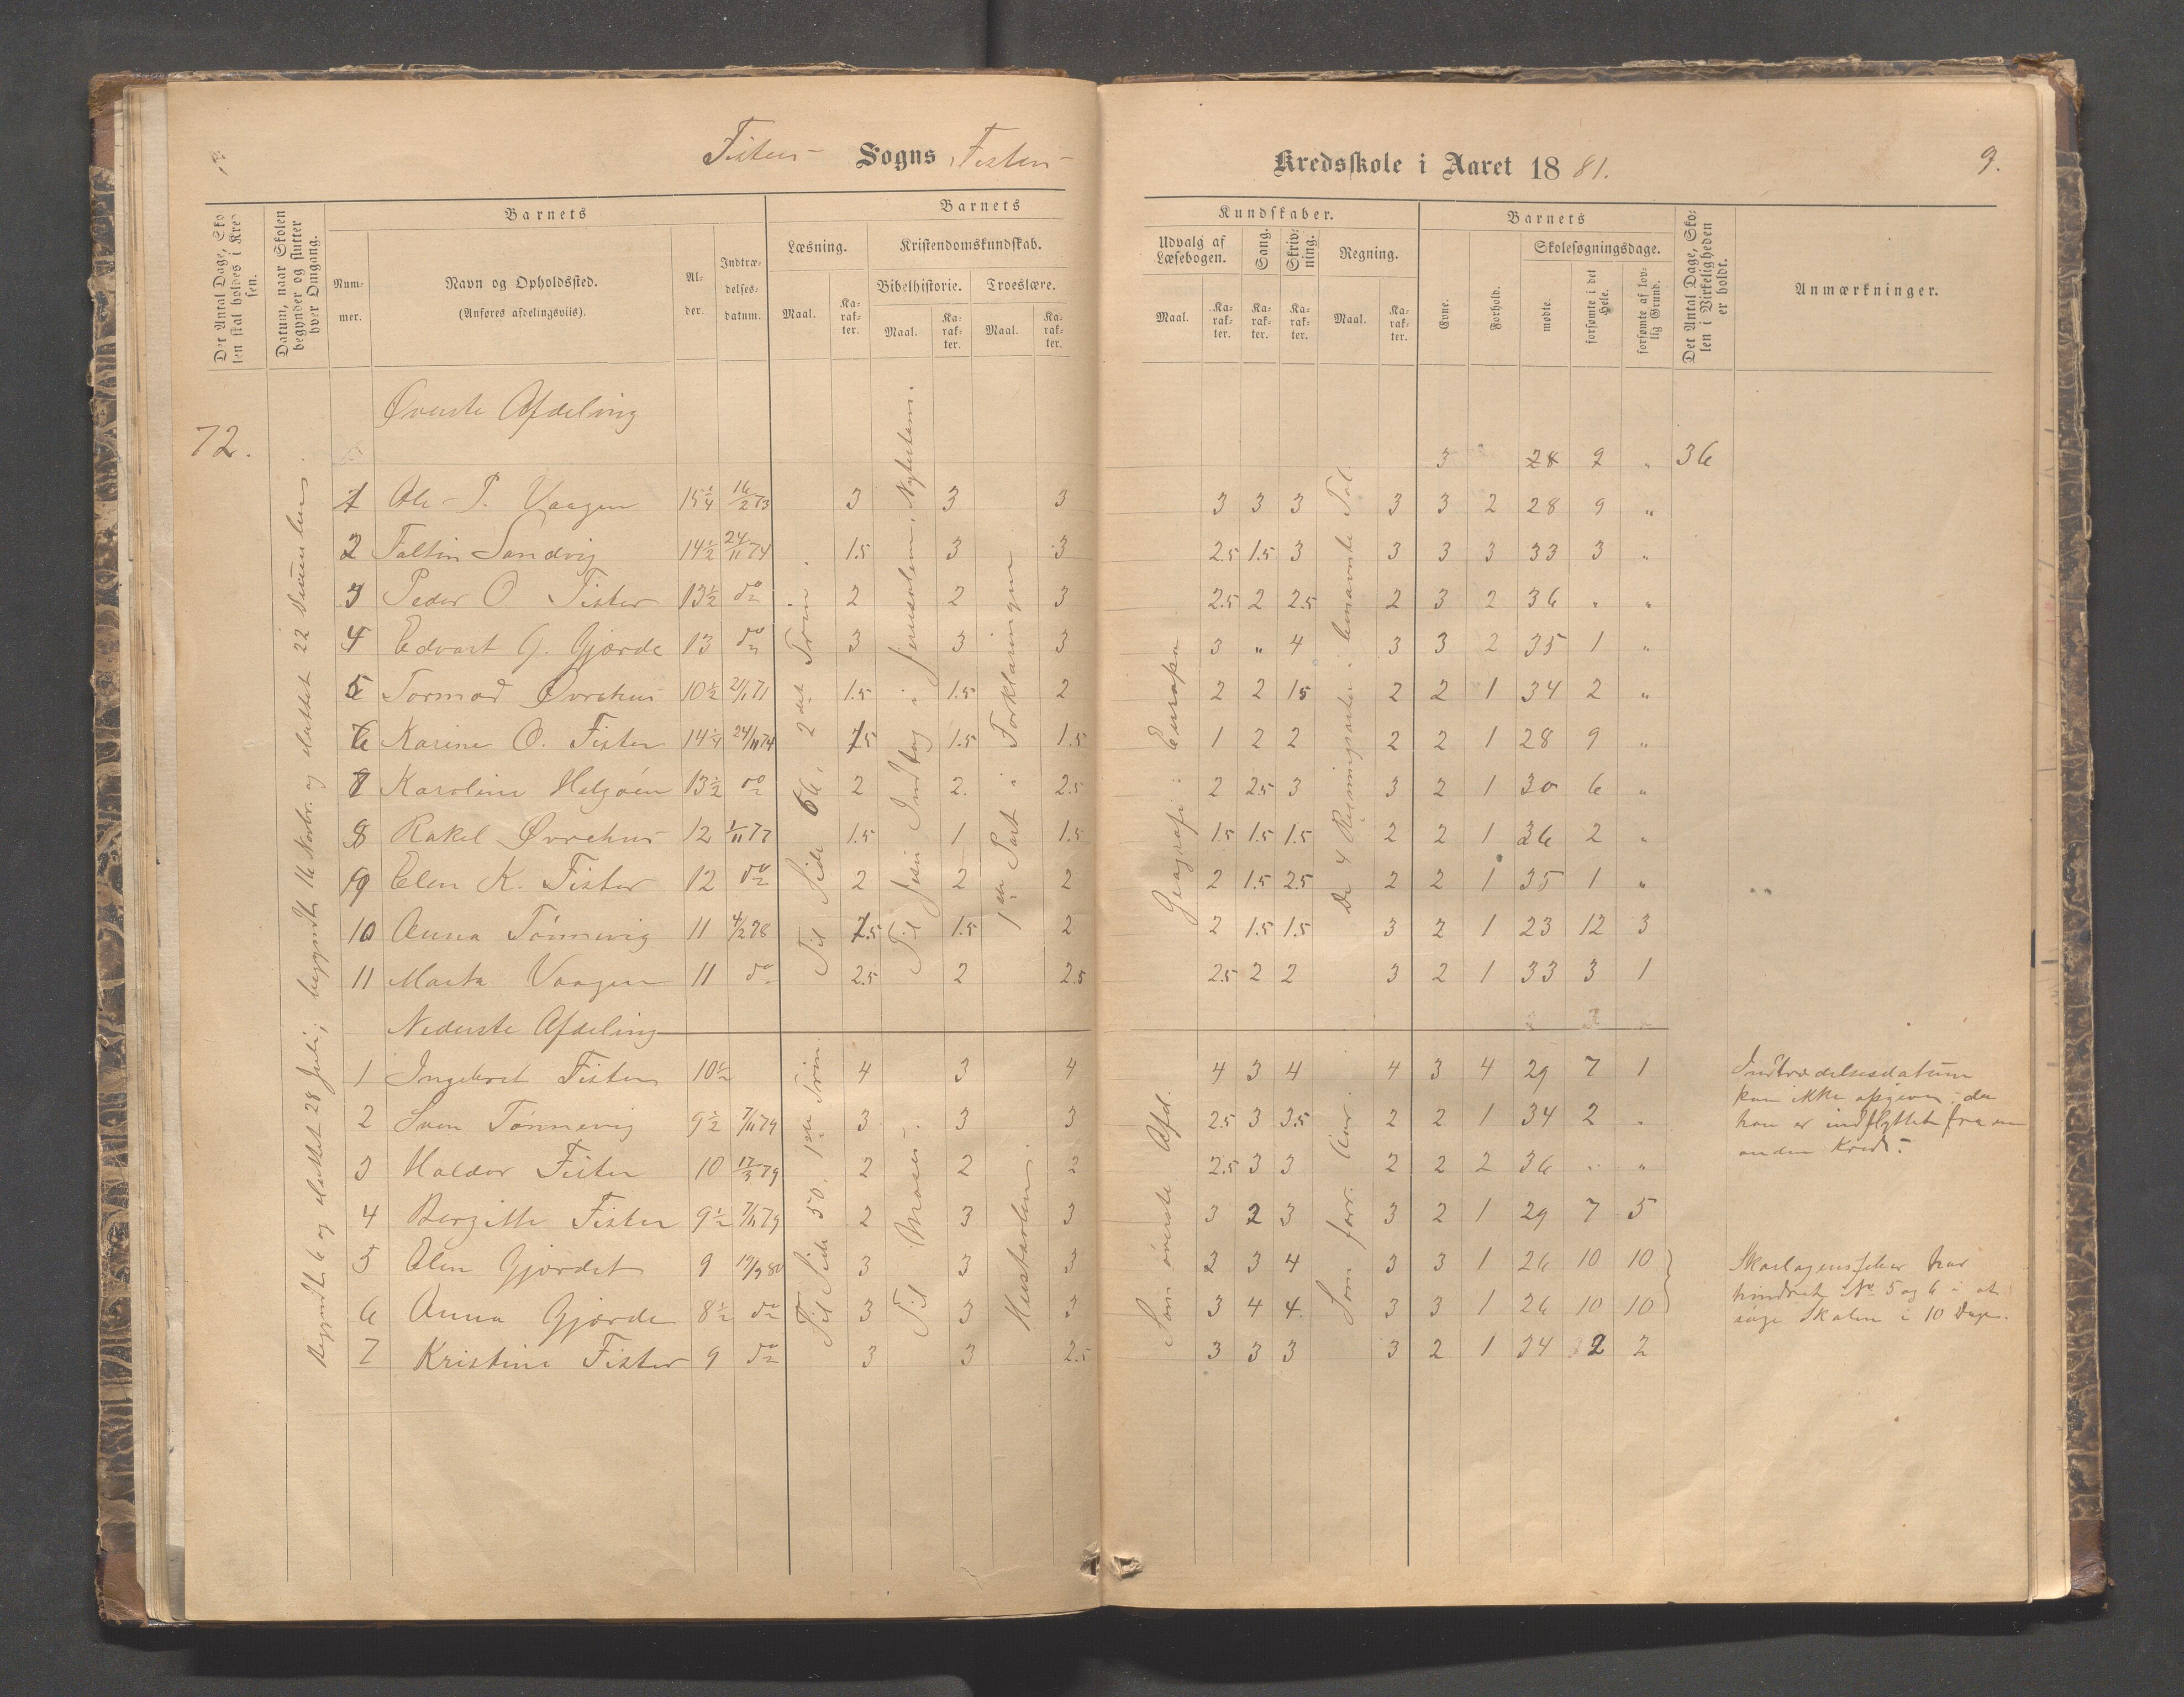 Fister Sogns Fister Kredsskole i Aaret 1881. 9.
Det Antal Dage, Skolen skal holdes i Kredsen.
Datum, naar Skolen begynder og slutter hver Omgang.
Barnets
Nummer.
Navn og Opholdssted.
(Anføres afdelingsviis).
Alder.
Indtrædelsesdatum.
Barnets
Læsning.
Maal. Karakter.
Kristendomskundskab.
Bibelhistorie. Troeslære.
Maal. Karakter. Maal. Karakter.
Kundskaber.
Udvalg af Læsebogen.
Maal. Karakter.
Sang. Karakter.
Skrivning. Karakter.
Regning.
Maal. Karakter.
Barnets
Evne. Forhold.
Skolesøgningsdage.
mødte. forsømte i det Hele. forsømte af lovlig Grund.
Det Antal Dage, Skolen i Virkeligheden er holdt.
Anmærkninger.
72.
Begyndt 6 og sluttet 28 Juli; begyndt 16 Novbr. og sluttet 22 December.
Øverste Afdeling
3 28 9 " 36
1 Ole P. Vaagen 15 1/4 16/2 73 3 3 3 3 3 3 3 3 2 28 9 "
2 Faltin Sandvig 14 1/2 24/11 74 1.5 3 3 2.5 1.5 3 3 3 3 33 3 "
3 Peder O Fister 13 1/2 do 2 2 3 2.5 2 2.5 2 3 2 36 " "
4 Edvart G. Gjærde 13 do 3 3 3 3 " 4 3 3 2 35 1 "
5 Tormod Øvrehus 10 1/2 21/1 71 1.5 1.5 2 2 2 15 2 2 1 34 2 "
6 Karine O. Fister 14 1/4 24/11 74 1.5 1.5 1.5 1 2 2 2 2 1 28 9 "
7 Karoline Helgøen 13 1/2 do 2 2. 2.5 2 2.5 3 3 2 1 30 6 "
8 Rakel Øvrehus 12 1/11 77 1.5 1 1.5 1.5 1.5 1.5 2 2 1 36 2 "
9 Elen K. Fister 12 do 2 2 2 2 1.5 2.5 2 2 1 35 1 "
10 Anna Tønnevig 11 4/2 78 1.5 1.5 2 2 1.5 1.5 3 2 1 23 12 3
11 Marta Vaagen 11 do 2.5 2 2.5 2.5 2 2 3 2 1 33 3 1
Til Side 66, 2det Trin.
Til Jesu Indtog i Jerusalem, Nytestam.
1ste Part i Forklaringen
Geografi: Europa
De 4 Regningsarter i benævnte Tal.
Nederste Afdeling
1 Ingebret Fister 10 1/2 4 3 4 4 3 4 4 3 4 29 7 1
2 Sven Tønnevig 9 1/2 7/11 79 3 3 3 2.5 3 3.5 2 2 1 34 2 "
3 Haldor Fister 10 17/3 79 2 2 2 2.5 3 3 2 2 2 36 " "
4 Bergitte Fister 9 1/2 7/11 79 2 3 3 3 2 3 3 2 1 29 7 5
5 Elen Gjærdet 9 19/9 80 3 3 3 3 3 4 3 3 1 26 10 10
6 Anna Gjærde 8 1/2 do 3 3 3 3 4 4 3 3 1 26 10 10
7 Kristine Fister 9 do 3 3 2.5 3 3 3 3 2 1 34 2 2
Til Side 50, 1ste Trin.
Til Moses.
Som øverste Afd.
Som forr. Aar.
Indtrædelsesdatum
kan ikke opgives, da
han er indflyttet fra en
anden Kreds.
Skarlagensfeber har
hindret No 5 og 6 i at
søge Skolen i 10 Dage.